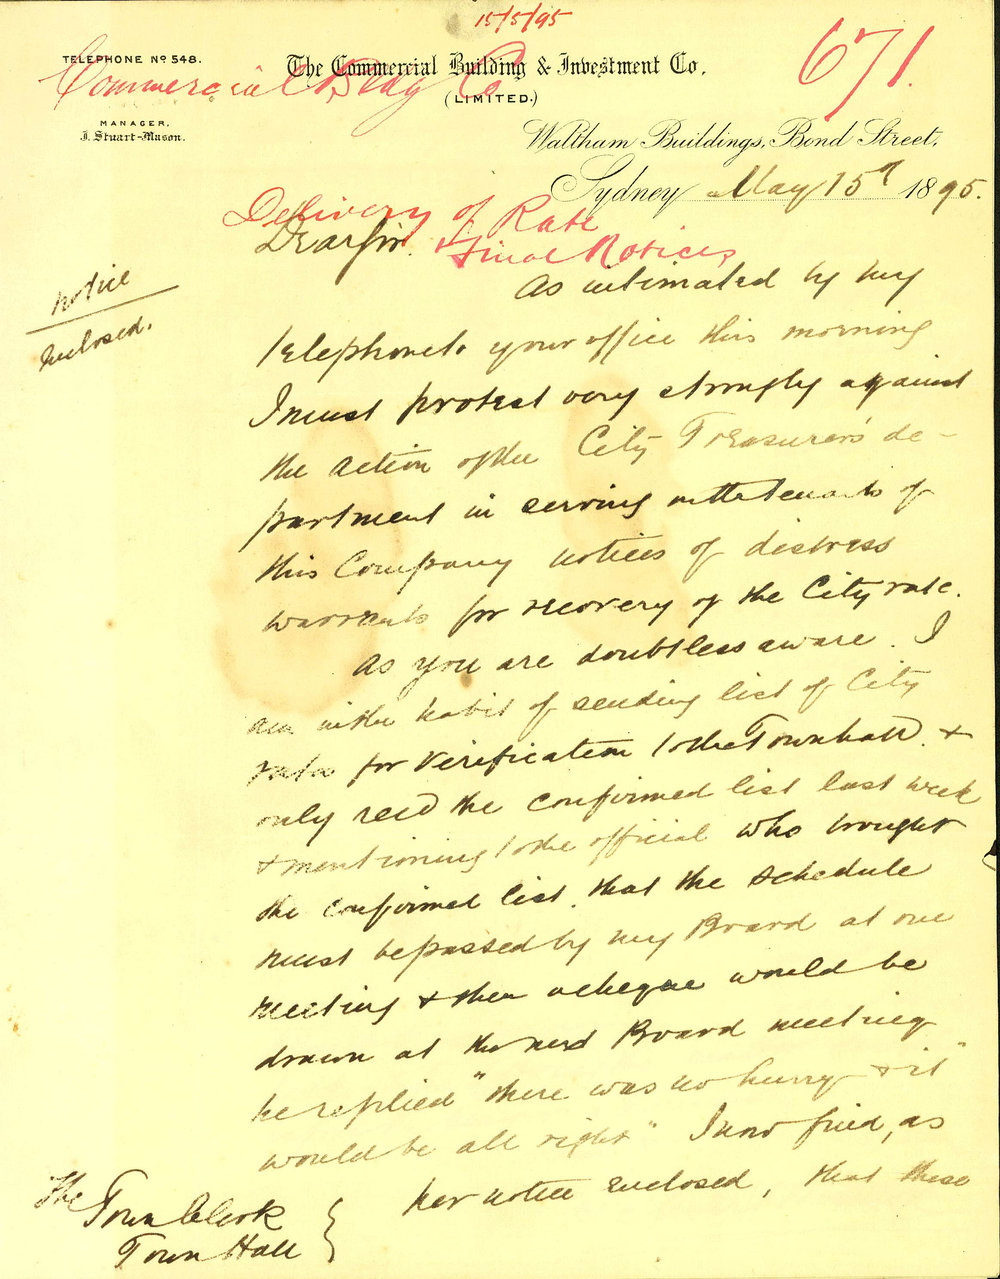 15/5/95
671.
TELEPHONE Nº 548.
The Commercial Building & Investment Co.
(LIMITED.)
Commercial Bldg Co
MANAGER,
J. Stuart-Mason.
Waltham Buildings, Bond Street,
Sydney May 15th 1895.
Delivery of Rate
Final Notices
Dear Sir.
notice
enclosed.
As intimated by my
telephone to your office this morning
I must protest very strongly against
the action of the City Treasurer's de-
partment in serving on the tenants of
this Company notices of distress
warrants for recovery of the City rate.
As you are doubtless aware. I
am in the habit of sending list of City
rates for verification to the Townhall. &
only recd the confirmed list last week
& mentioning to the official who brought
the confirmed list. that the schedule
must be passed by my Board at one
meeting & then a cheque would be
drawn at the next Board meeting
he replied "there was no hurry & it"
would be all right" I now find, as
per notice enclosed, that these
The
Town Clerk
Town Hall